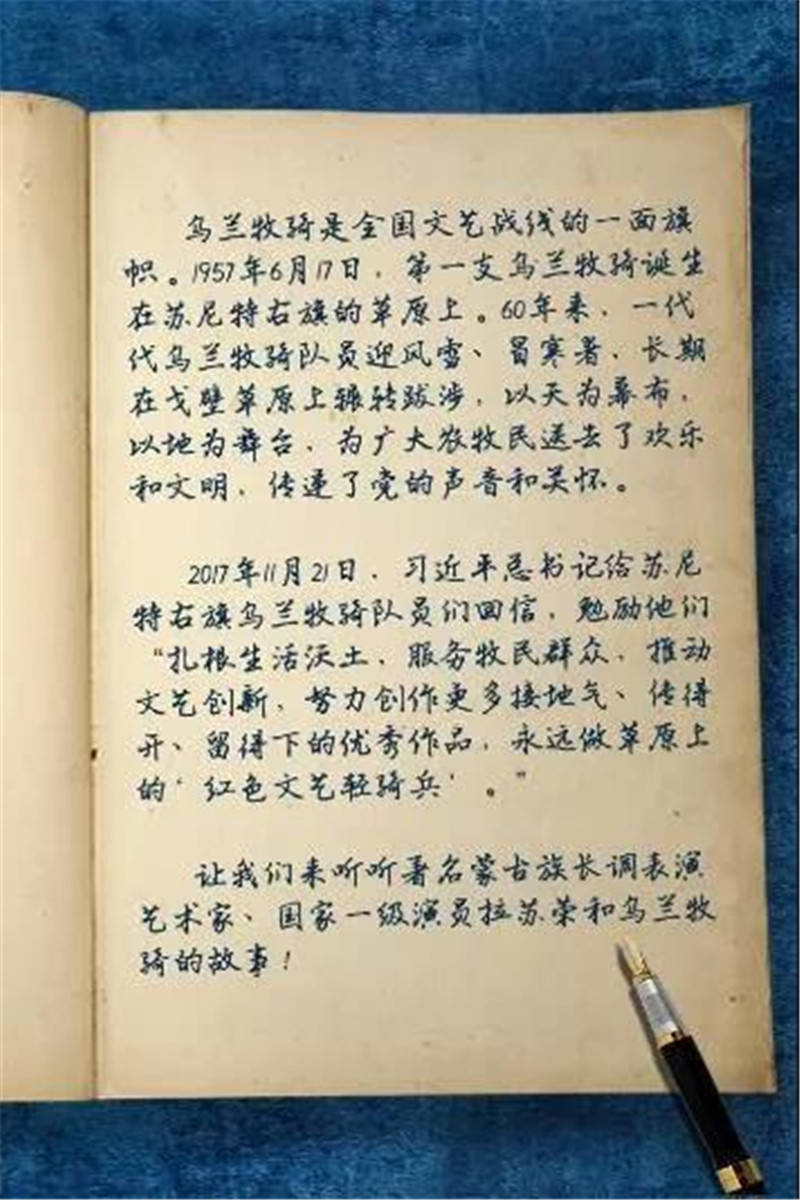 乌兰牧骑是全国文艺战线的一面旗
帜。1957年6月17日，第一支乌兰牧骑诞生
在苏尼特右旗的草原上。60年来，一代
代乌兰牧骑队员迎风雪、冒寒暑，长期
在戈壁草原上辗转跋涉，以天为幕布，
以地为舞台，为广大农牧民送去了欢乐
和文明，传递了党的声音和关怀。
2017年11月21日，习近平总书记给苏尼
特右旗乌兰牧骑队员们回信，勉励他们
“扎根生活沃土，服务牧民群众，推动
文艺创新，努力创作更多接地气、传得
开、留得下的优秀作品，永远做草原上
的‘红色文艺轻骑兵’。”
让我们来听听著名蒙古族长调表演
艺术家、国家一级演员拉苏荣和乌兰牧
骑的故事！